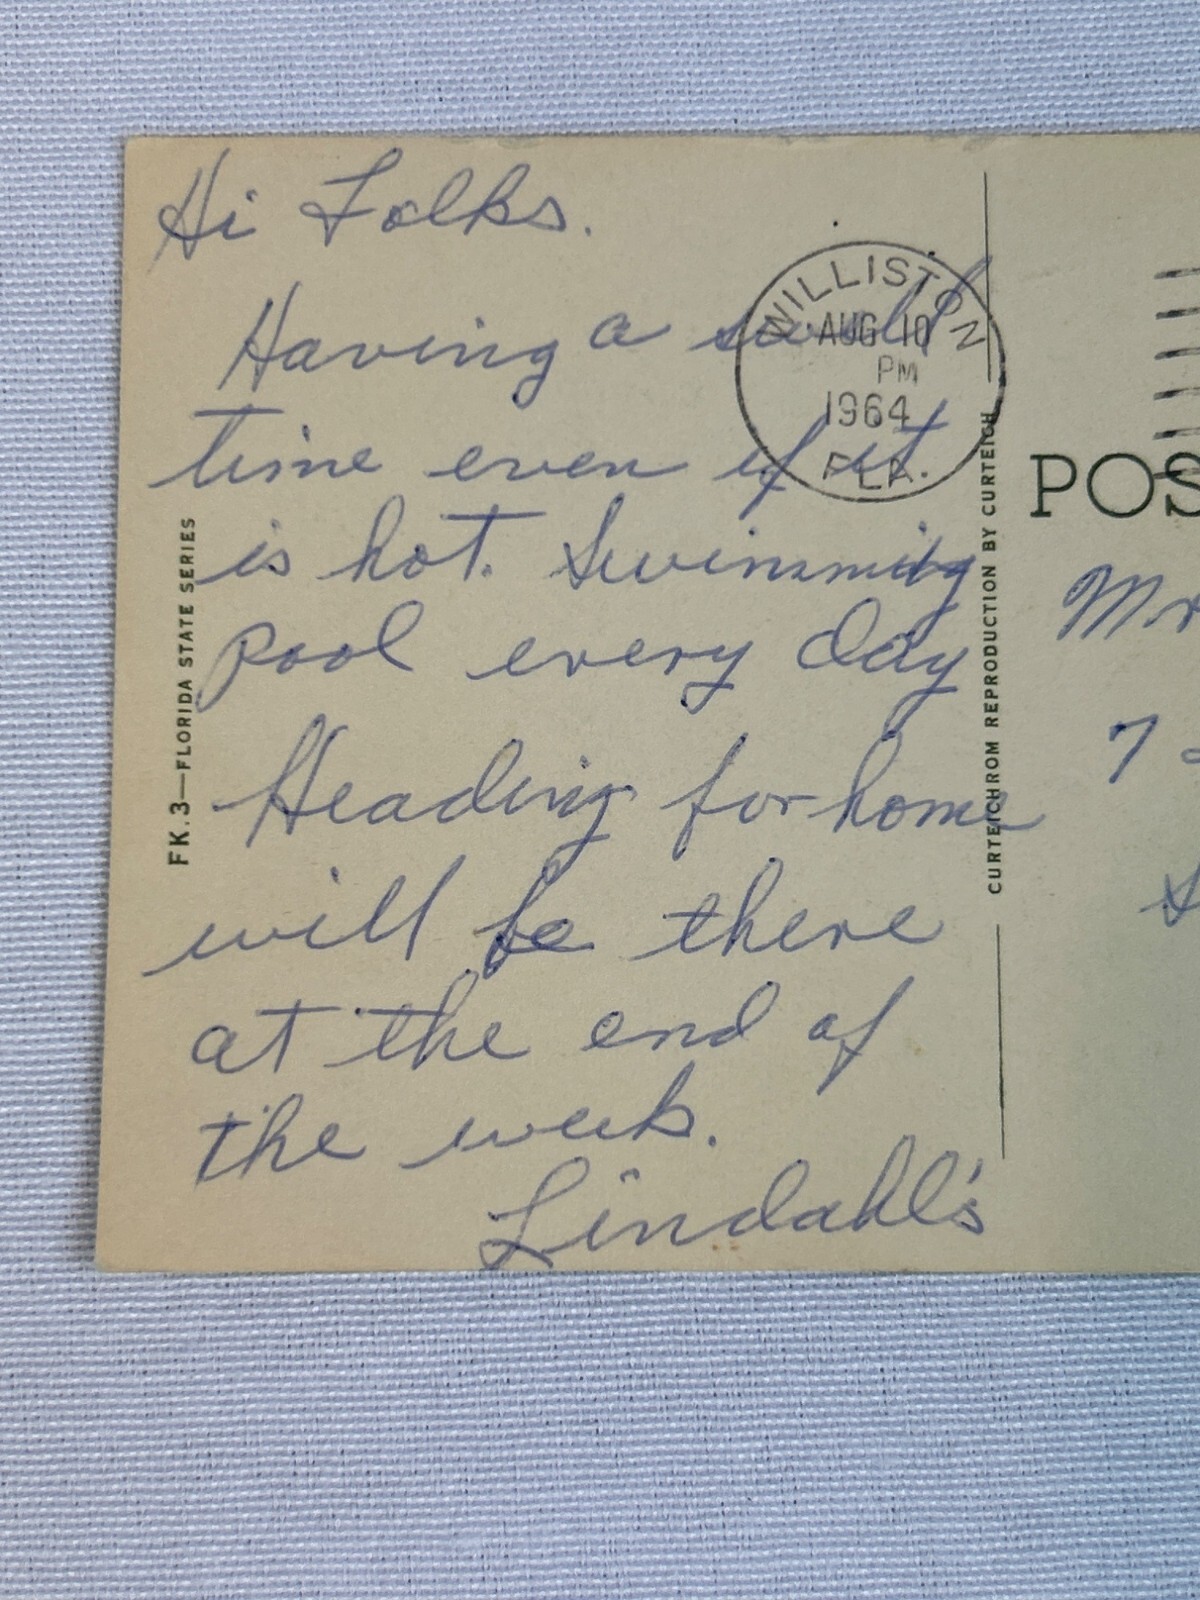 Hi Folks.
Having a swell
time even if it
is hot. Swimming
pool every day
Heading for home
will be there
at the end of
the week.
Lindahl's
FK.3—FLORIDA STATE SERIES
WILLISTON
AUG 10
PM
1964
FLA.
CURTEICHROM REPRODUCTION BY CURTEICH
POS
Mr
7